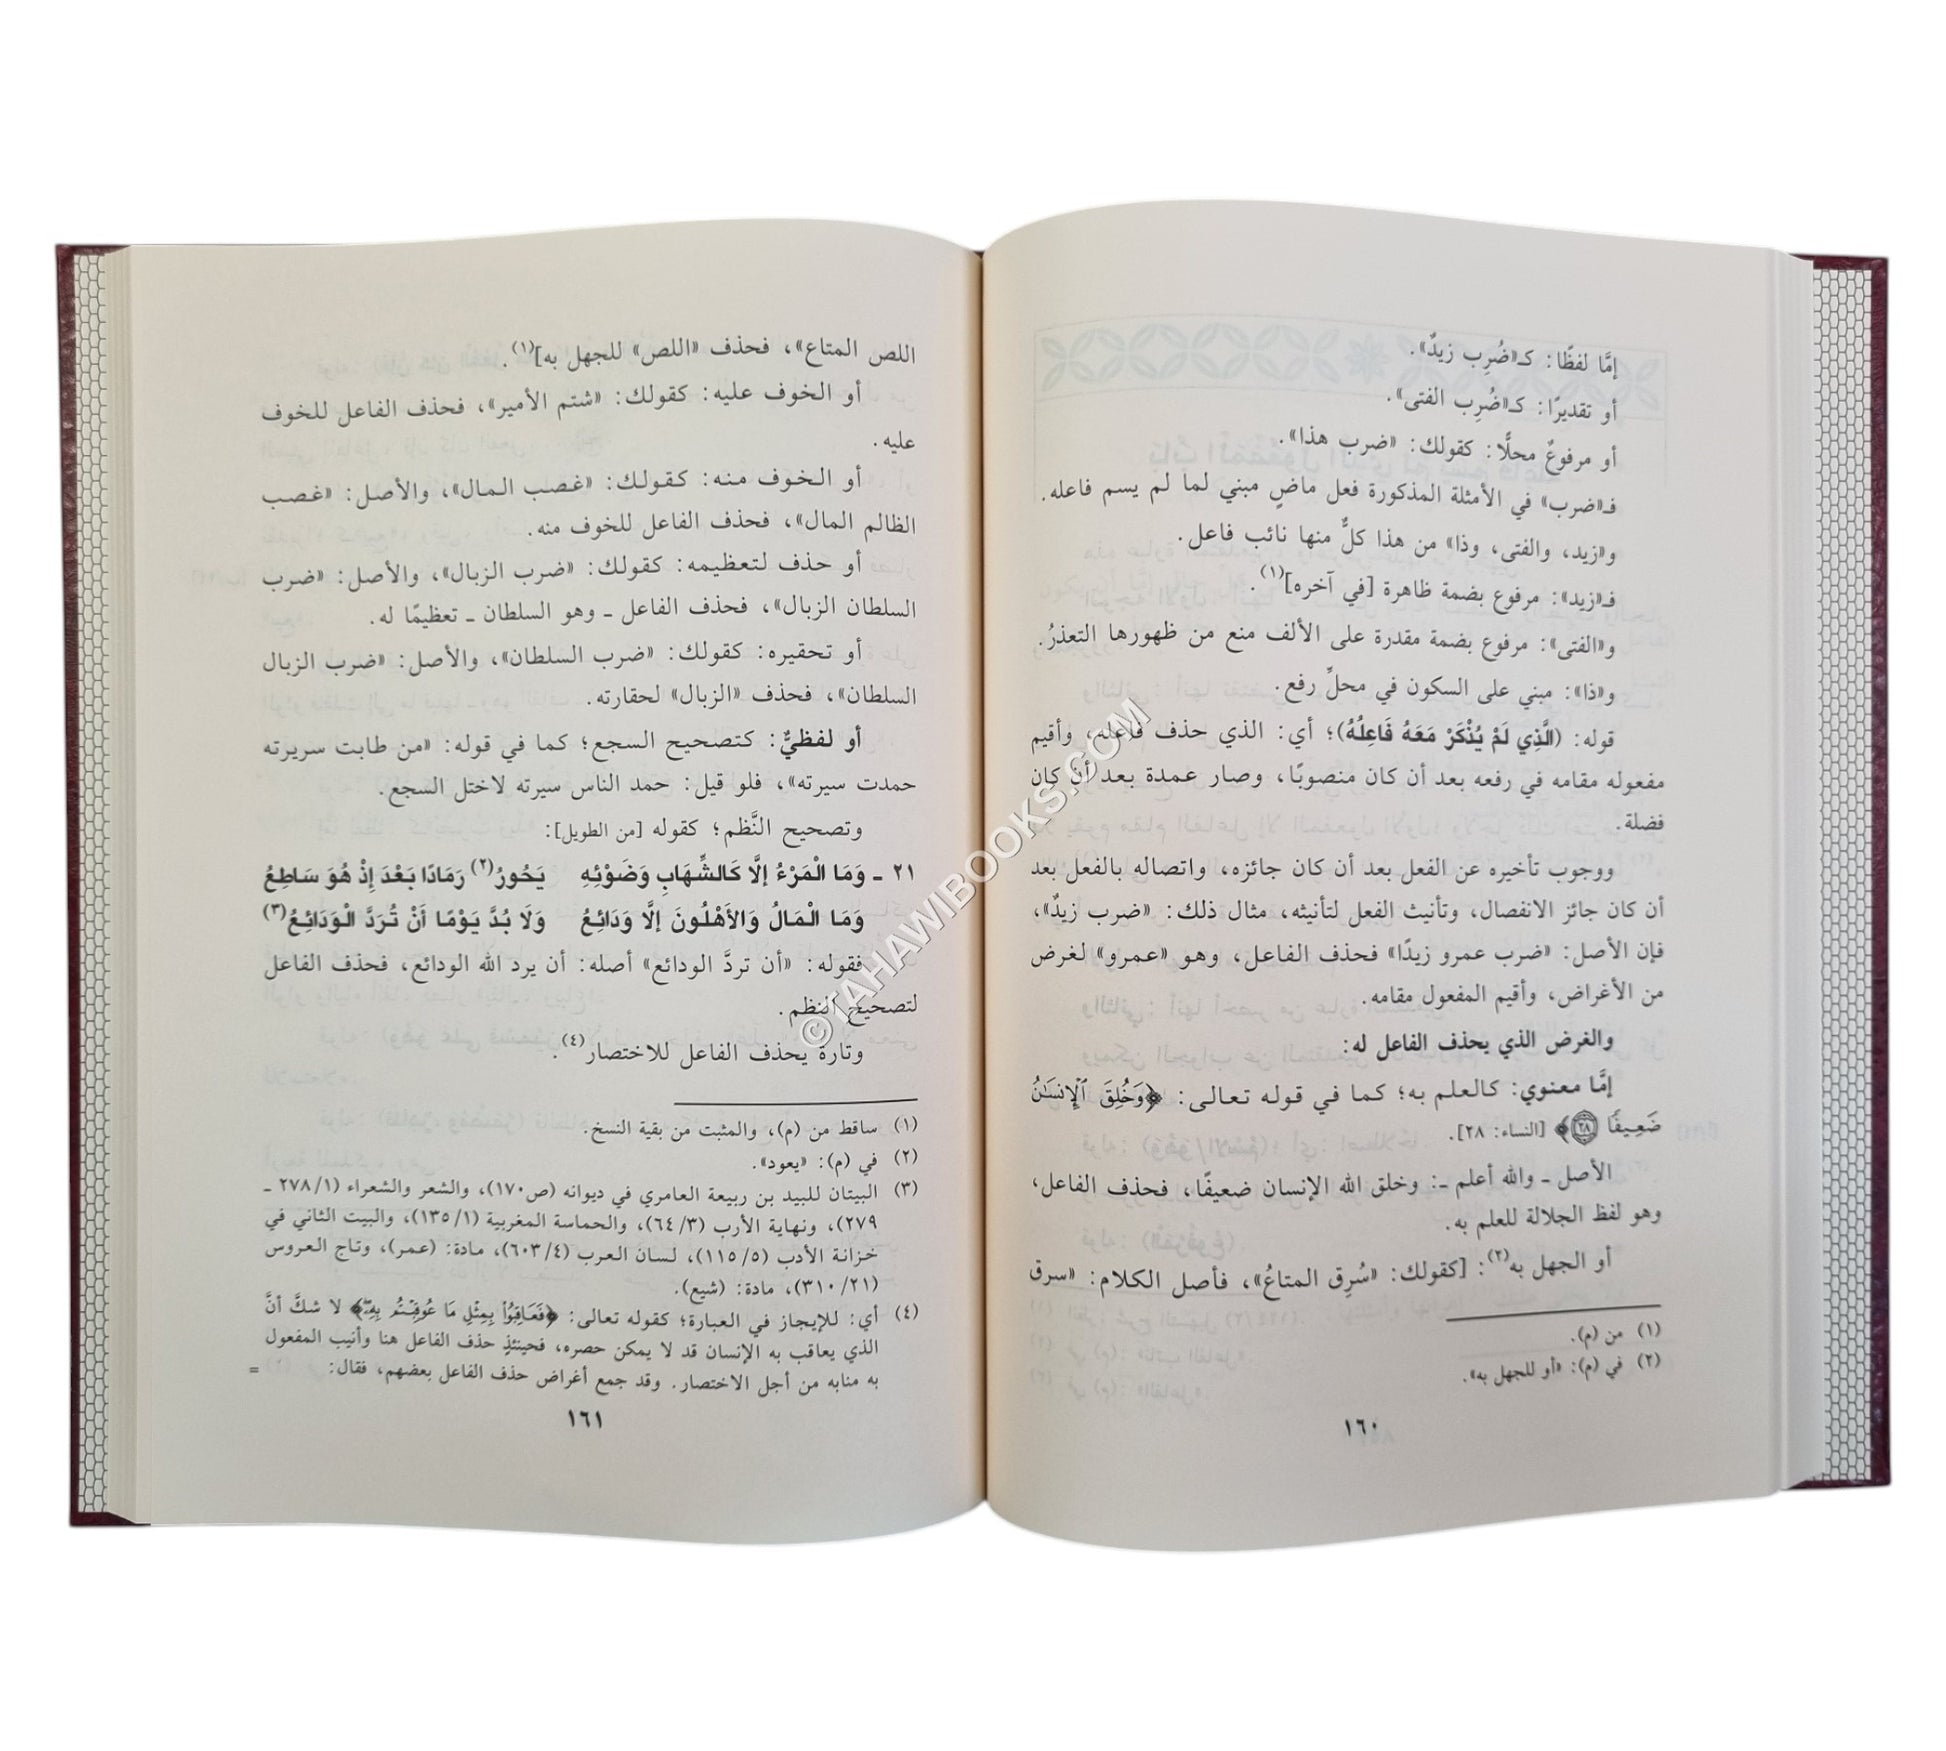 إمَّا لفظًا: كـ«ضُرِب زيدٌ».
أو تقديرًا: كـ«ضُرِب الفتى».
أو مرفوعٌ محلًّا: كقولك: «ضرب هذا».
فـ«ضرب» في الأمثلة المذكورة فعل ماضٍ مبني لما لم يسم فاعله.
و«زيد، والفتى، وذا» من هذا كلٌّ منها نائب فاعل.
فـ«زيد»: مرفوع بضمة ظاهرة [في آخره](١).
و«الفتى»: مرفوع بضمة مقدرة على الألف منع من ظهورها التعذرُ.
و«ذا»: مبني على السكون في محلِّ رفع.
قوله: (الَّذِي لَمْ يُذْكَرْ مَعَهُ فَاعِلُهُ)؛ أي: الذي حذف فاعله، وأقيم
مفعوله مقامه في رفعه بعد أن كان منصوبًا، وصار عمدة بعد أن كان
فضلة.
ووجوب تأخيره عن الفعل بعد أن كان جائزه، واتصاله بالفعل بعد
أن كان جائز الانفصال، وتأنيث الفعل لتأنيثه، مثال ذلك: «ضرب زيدٌ»،
فإن الأصل: «ضرب عمرو زيدًا» فحذف الفاعل، وهو «عمرو» لغرض
من الأغراض، وأقيم المفعول مقامه.
والغرض الذي يحذف الفاعل له:
إمَّا معنوي: كالعلم به؛ كما في قوله تعالى: ﴿وَخُلِقَ ٱلْإِنسَـٰنُ
ضَعِيفًا ٢٨﴾ [النساء: ٢٨].
الأصل ـ والله أعلم ـ: وخلق الله الإنسان ضعيفًا، فحذف الفاعل،
وهو لفظ الجلالة للعلم به.
أو الجهل به(٢): [كقولك: «سُرِق المتاعُ»، فأصل الكلام: «سرق
(١) من (م).
(٢) في (م): «أو للجهل به».
١٦٠
اللص المتاع»، فحذف «اللص» للجهل به](١).
أو الخوف عليه: كقولك: «شتم الأمير»، فحذف الفاعل للخوف
عليه.
أو الخوف منه: كقولك: «غصب المال»، والأصل: «غصب
الظالم المال»، فحذف الفاعل للخوف منه.
أو حذف لتعظيمه: كقولك: «ضرب الزبال»، والأصل: «ضرب
السلطان الزبال»، فحذف الفاعل ـ وهو السلطان ـ تعظيمًا له.
أو تحقيره: كقولك: «ضرب السلطان»، والأصل: «ضرب الزبال
السلطان»، فحذف «الزبال» لحقارته.
أو لفظيٌّ: كتصحيح السجع؛ كما في قوله: «من طابت سريرته
حمدت سيرته»، فلو قيل: حمد الناس سيرته لاختل السجع.
وتصحيح النَّظم؛ كقوله [من الطويل]:
٢١ ـ وَمَا الْمَرْءُ إلَّا كَالشِّهَابِ وَضَوْئِهِ يَحُورُ(٢) رَمَادًا بَعْدَ إذْ هُوَ سَاطِعُ
وَمَا الْمَالُ وَالأَهْلُونَ إلَّا وَدَائِعُ وَلَا بُدَّ يَوْمًا أَنْ تُرَدَّ الْوَدَائِعُ(٣)
فقوله: «أن تردَّ الودائع» أصله: أن يرد الله الودائع، فحذف الفاعل
لتصحيح النظم.
وتارة يحذف الفاعل للاختصار(٤).
(١) ساقط من (م)، والمثبت من بقية النسخ.
(٢) في (م): «يعود».
(٣) البيتان للبيد بن ربيعة العامري في ديوانه (ص١٧٠)، والشعر والشعراء (٢٧٨/١ ـ
٢٧٩)، ونهاية الأرب (٦٤/٣)، والحماسة المغربية (١٣٥/١)، والبيت الثاني في
خزانة الأدب (١١٥/٥)، لسان العرب (٦٠٣/٤)، مادة: (عمر)، وتاج العروس
(٣١٠/٢١)، مادة: (شيع).
(٤) أي: للإيجاز في العبارة؛ كقوله تعالى: ﴿فَعَاقِبُوا۟ بِمِثْلِ مَا عُوقِبْتُم بِهِۦ﴾ لا شكَّ أنَّ
الذي يعاقب به الإنسان قد لا يمكن حصره، فحينئذٍ حذف الفاعل هنا وأنيب المفعول
به منابه من أجل الاختصار. وقد جمع أغراض حذف الفاعل بعضهم، فقال: =
١٦١
©TAHAWIBOOKS.COM